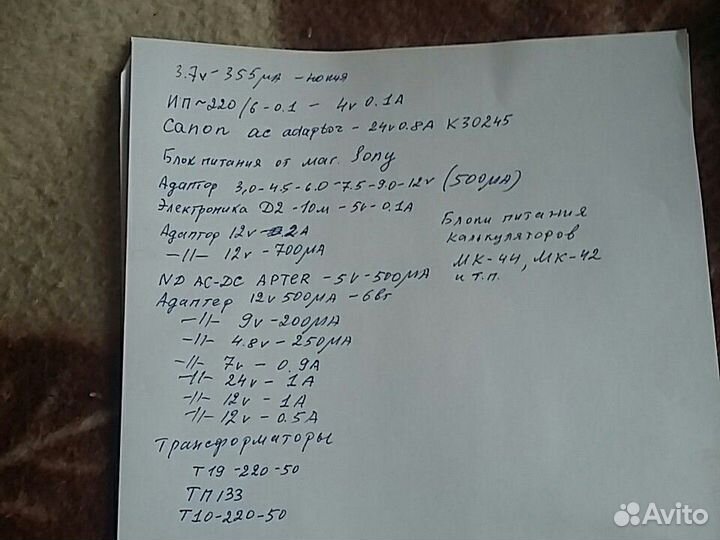 3.7v - 355мА - нокия
ИП ~ 220/6 - 0.1 - 4v 0.1A
Canon ac adaptor - 24v 0.8A K30245
Блок питания от маг. Sony
Адаптор 3,0-4.5-6.0-7.5-9.0-12v (500мА)
Электроника Д2 - 10м - 5v - 0.1A
Адаптор 12v - 2A
-//- 12v - 700мА
ND AC-DC APTER - 5v - 500мА
Адаптер 12v 500мА - 6вт
-//- 9v - 200мА
-//- 4.8v - 250мА
-//- 7v - 0.9A
-//- 24v - 1A
-//- 12v - 1A
-//- 12v - 0.5A
Трансформаторы
Т19-220-50
ТП133
Т10-220-50
Блоки питания
калькуляторов
МК-44, МК-42
и т.п.
Avito